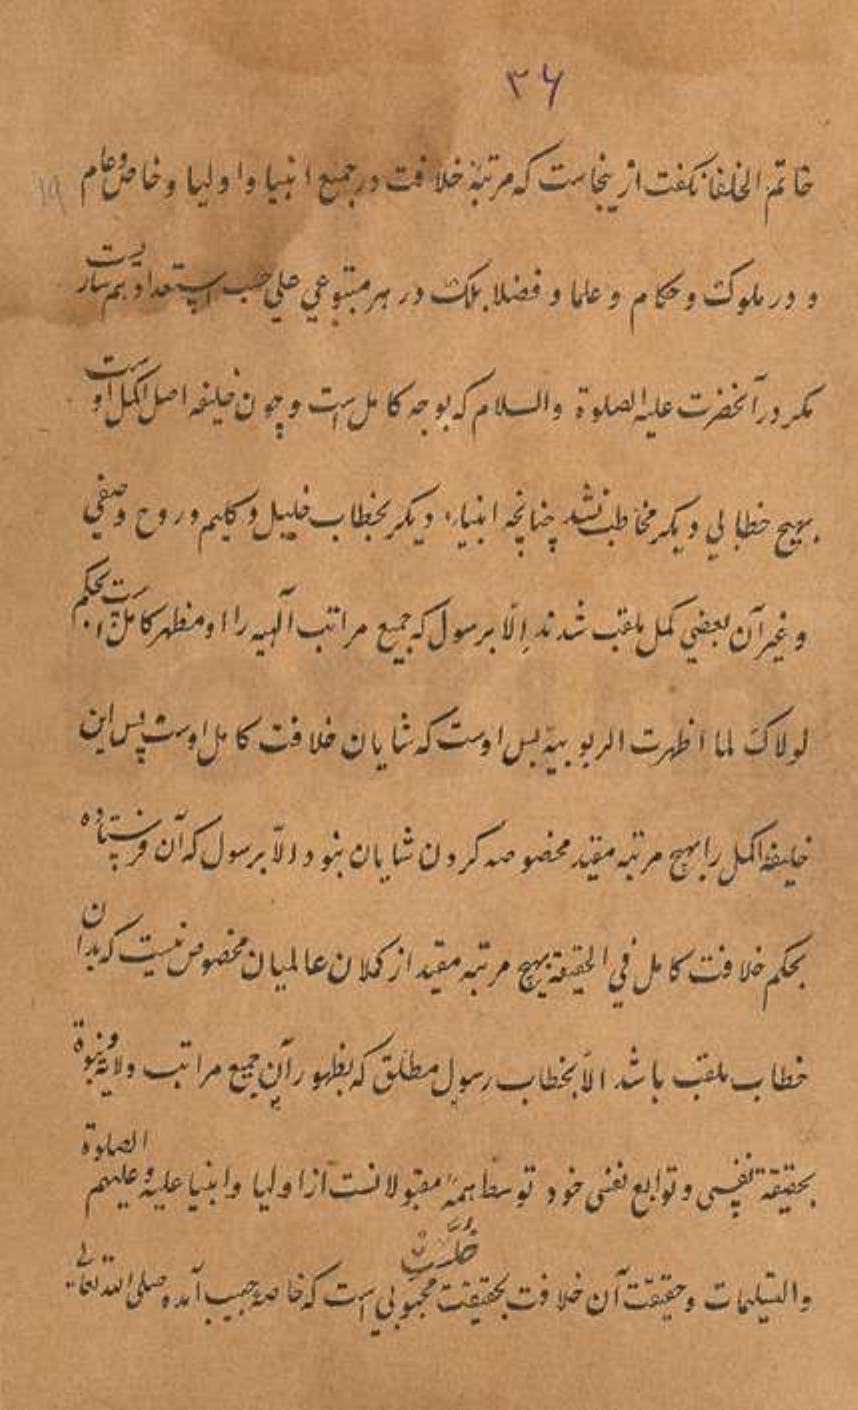 ۳۶
خاتم الخلفا نکفت از ینجاست که مرتبهٔ خلافت در جمیع انبیا و اولیا و خاص و عام
۱۹
و در ملوک و حکام و علما و فضلا بلکه در هر متبوعی علی حسب استعداد هم ساریست
مکر در آنحضرت علیه الصلوة والسلام که بوجه کامل است و چون خلیفه اصل اکمل اوست
بهیچ خطابی دیکر مخاطب نشد چنانچه انبیاء دیکر بخطاب خلیل و کلیم و روح و صفی
و غیر آن بعضی کمل ملقب شدند اِلّا برسول که جمیع مراتب آلهیه را او مظهر کامل است بحکم
لولاک لما اظهرت الربوبیة بس اوست که شایان خلافت کامل اوست پس این
خلیفهٔ اکمل را بهیچ مرتبه مقید مخصوصه کردن شایان نبود الاّ برسول که آن فرستاده
بحکم خلافت کامل فی الحقیقة بهیچ مرتبه مقید از کملان عالمیان مخصوص نیست که بدان
خطاب ملقب باشد الاّ بخطاب رسول مطلق که بظهور آن جمیع مراتب ولایة و نبوة
بحقیقة نفسی و توابع نفسی خود توسط همهٔ مقبولانست از اولیا و انبیا علیه و علیهم الصلوة
والتسلیمات و حقیقت آن خلافت بحقیقت محبوبی است که خاصهٔ حبیب آمده صلی الله تعالی